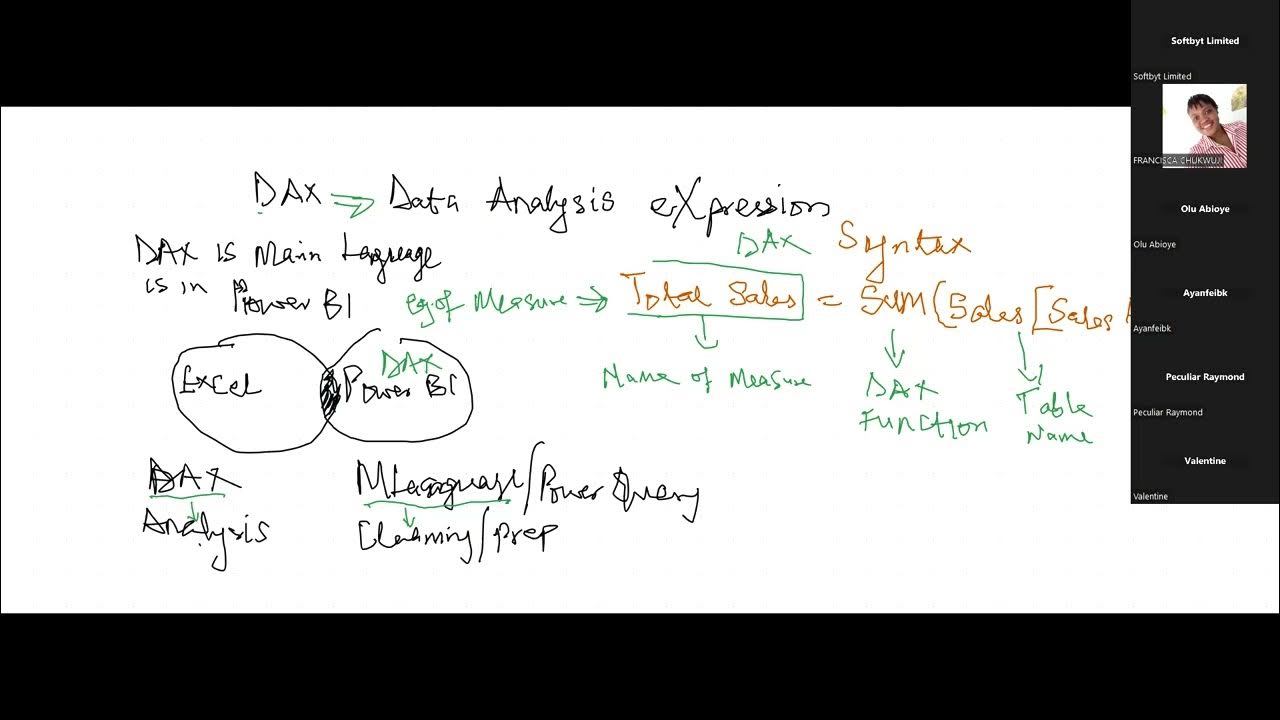 DAX ⇒ Data Analysis eXpression
DAX is Main Language
is in Power BI
DAX Syntax
eg. of Measure ⇒ Total Sales = SUM(Sales[Sales
Name of Measure
DAX
Function
Table
Name
Excel
DAX
Power BI
DAX
Analysis
MLanguage/Power Query
Cleaning/prep
Softbyt Limited
Softbyt Limited
FRANCISCA CHUKWUJI
Olu Abioye
Olu Abioye
Ayanfeibk
Ayanfeibk
Peculiar Raymond
Peculiar Raymond
Valentine
Valentine